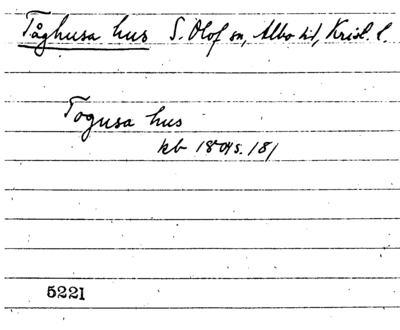 Tåghusa hus S. Olof sn, Albo hd, Krist. l.
Togusa hus
kb 1804 s. 181
5221